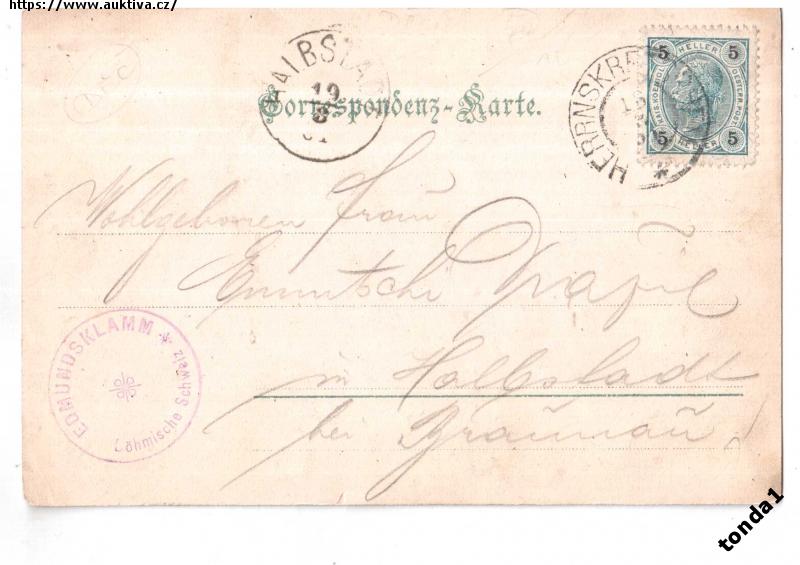 https://www.auktiva.cz/
HALBSTA
19
8
Correspondenz-Karte.
HERRNSKRE
5 HELLER 5
KAIS. KOENIGL. OESTERR. POST.
5 HELLER 5
Wohlgeboren Frau
in Halbstadt
bei Braunau!
EDMUNDSKLAMM *
Böhmische Schweiz
tonda1